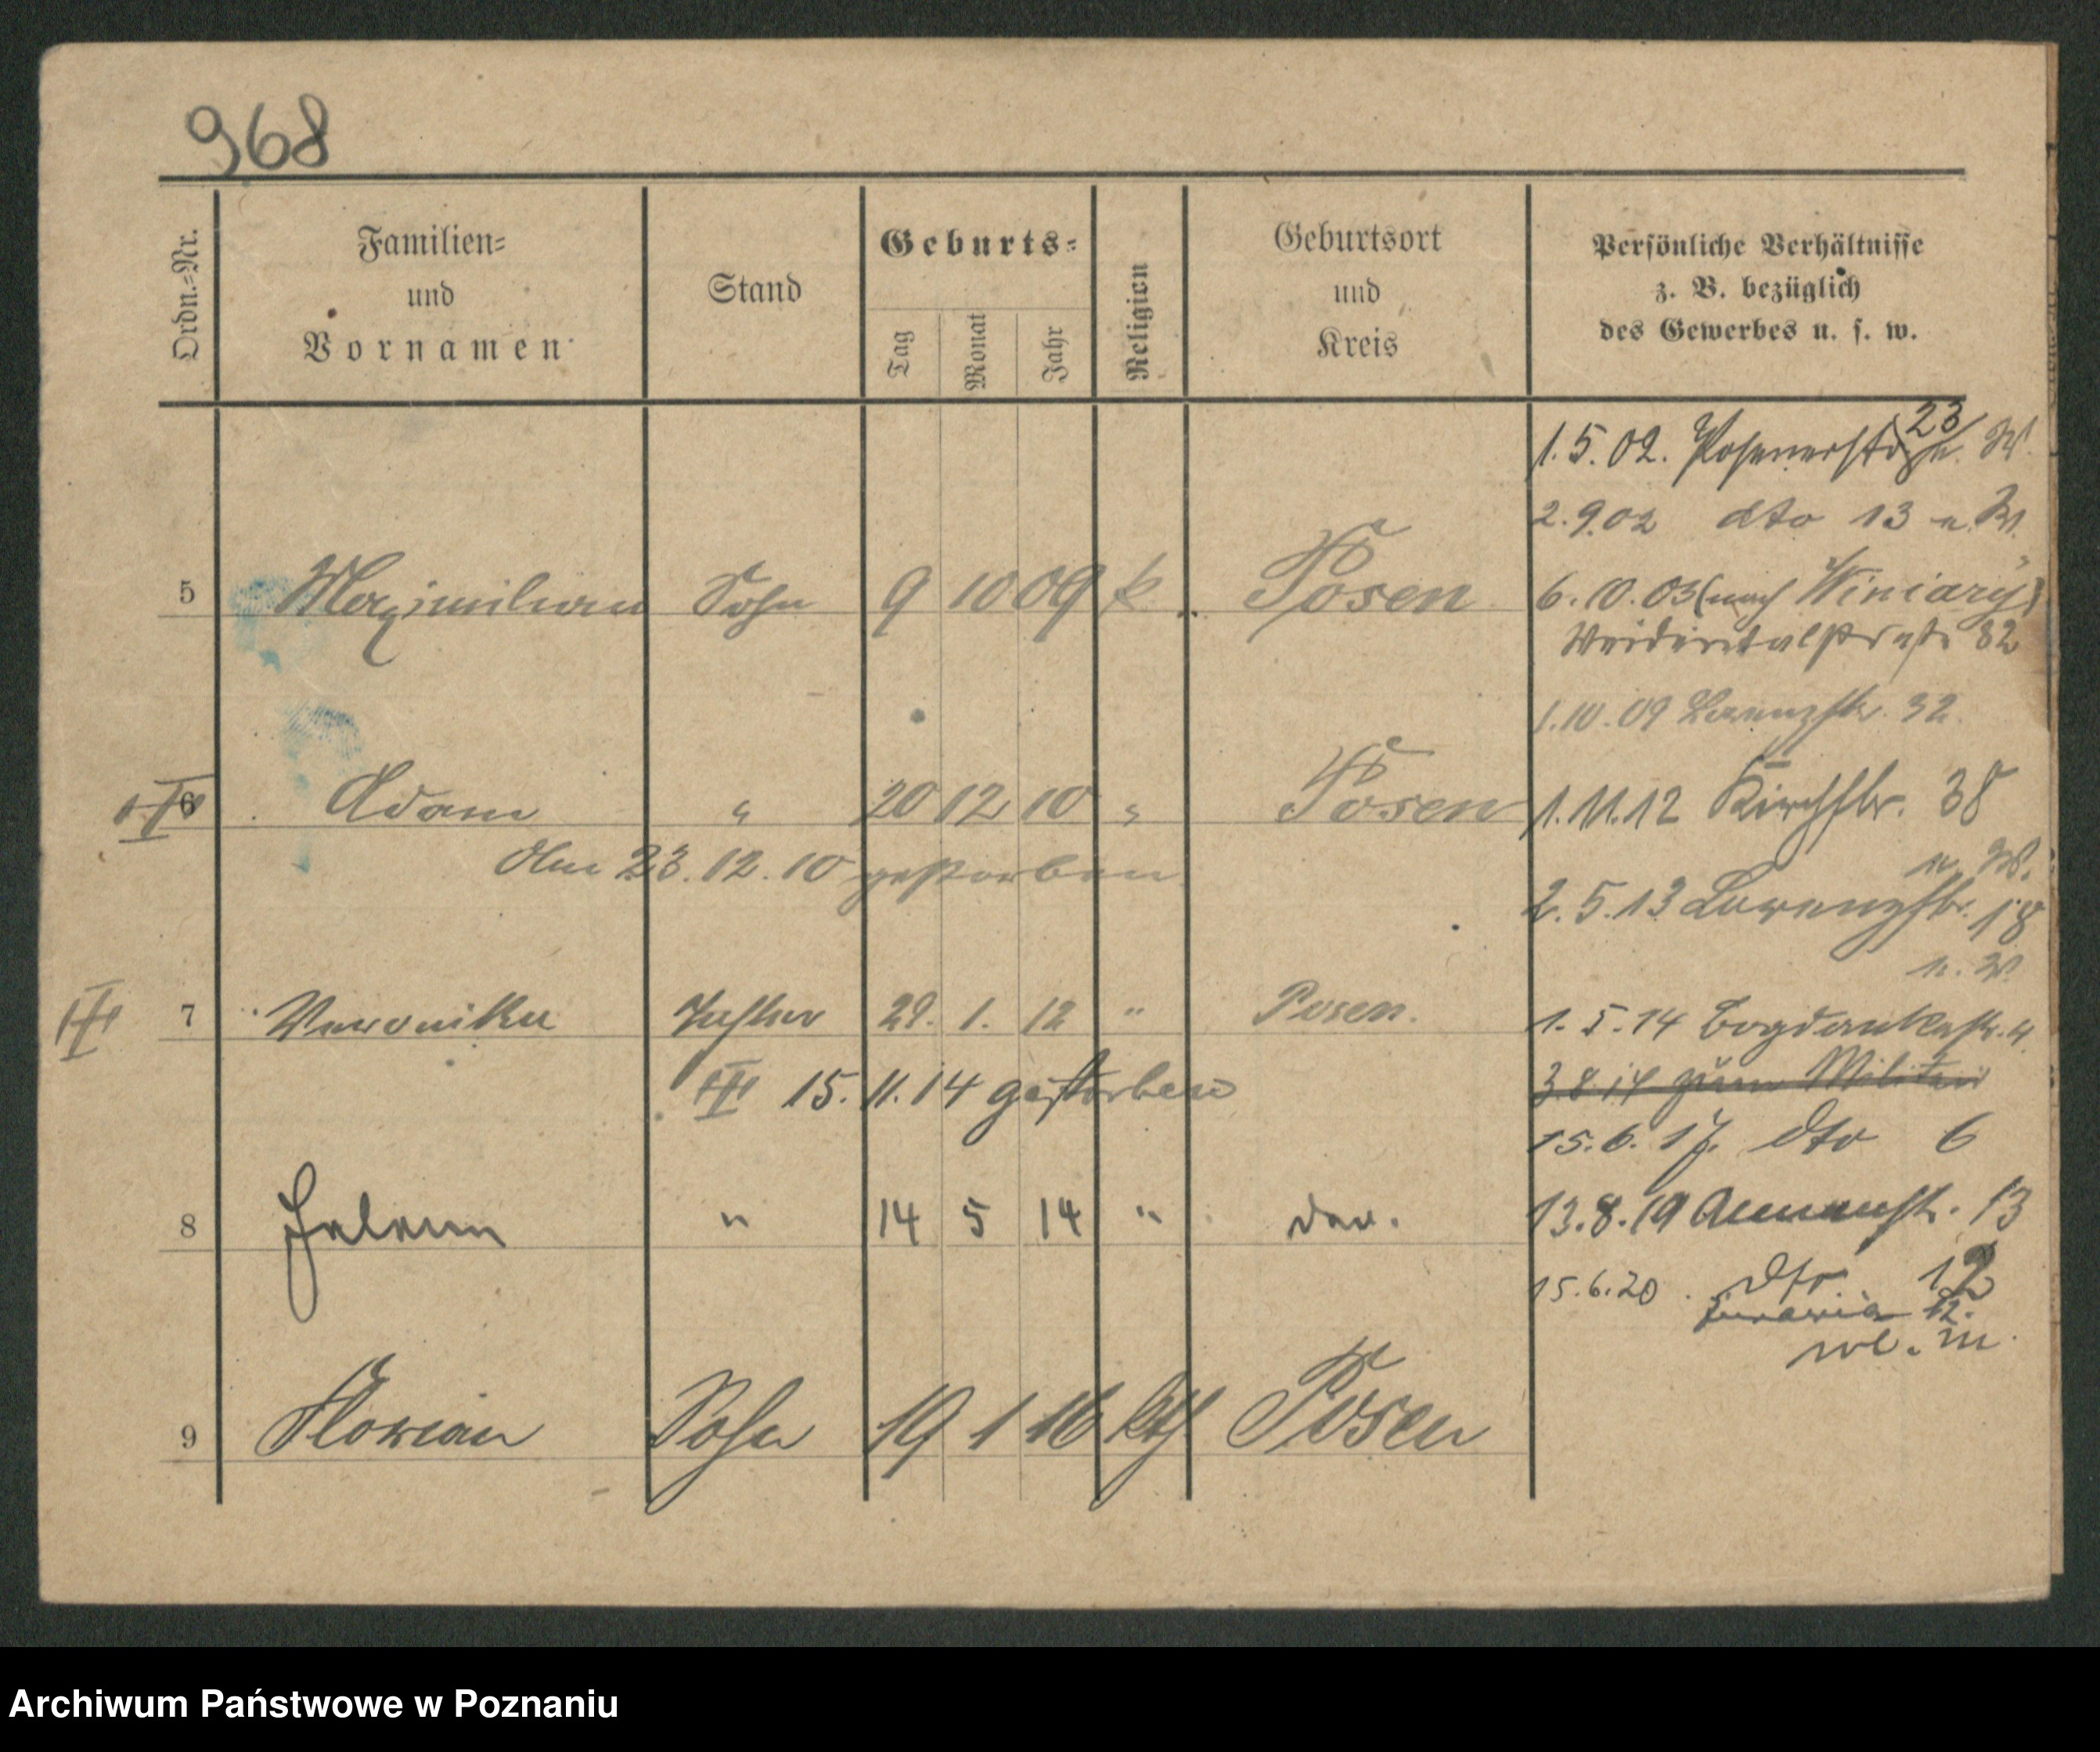 968
Ordn.-Nr.
Familien- und Vornamen
Stand
Geburts-
Tag
Monat
Jahr
Religion
Geburtsort und Kreis
Persönliche Verhältnisse z. B. bezüglich des Gewerbes u. s. w.
1.5.02. Posenerstr 23
2.9.02 dto 13 n. W.
5 Maximilian Sohn 9 10 09 k. Posen
6.10.03 (nach Winiary)
32
1.10.09 Lorenzstr. 32
6 Adam " 20 12 10 " Posen
Am 23.12.10 gestorben
1.11.12 Kirchstr. 38
n. W.
2.5.13 Lorenzstr. 18
n. W.
7 Veronika Tochter 29. 1. 12 " Posen.
1.5.14 Bogdankastr. 4.
15. 11. 14 gestorben
3.8.14 zum Militär
15.6.17. dto 6
8 Helena " 14 5 14 "
13.8.19 Annenstr. 13
15.6.20. dto 12
12.
wl. m.
9 Florian Sohn 19 1 16 kth Posen
Archiwum Państwowe w Poznaniu